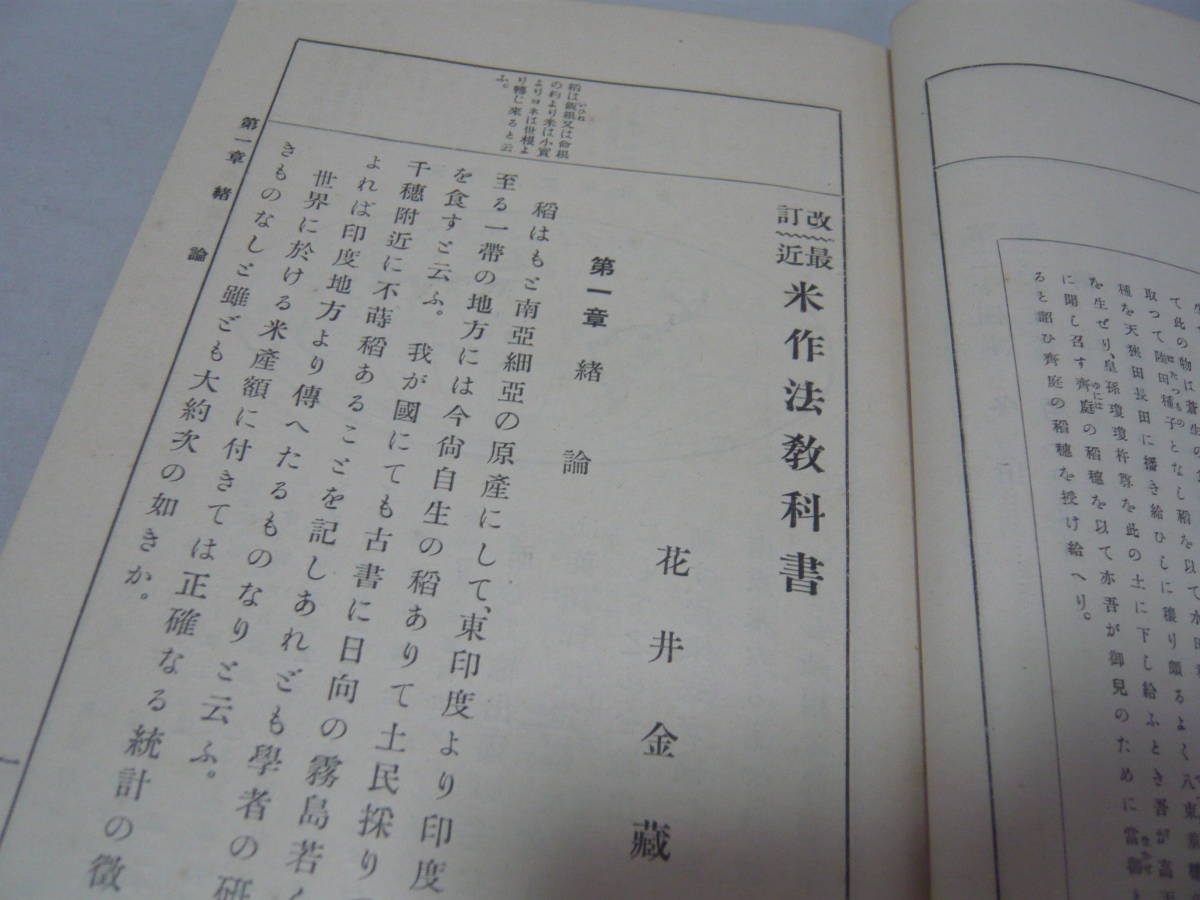 て此の物は蒼生の
取つて陸田種子となし稻を以て水田
種を天狹田長田に播き給ひしに穰り頗るよく八束
を生ぜり、皇孫瓊瓊杵尊を此の土に下し給ふとき吾が高天
に聞し召す齊庭の稻穗を以て亦吾が御兒のために當御と
ると詔ひ齊庭の稻穗を授け給へり。
改訂
最近
米作法教科書
花井金藏
第一章 緒論
稻はもと南亞細亞の原產にして、東印度より印度
至る一帶の地方には今尙自生の稻ありて土民採り
を食すと云ふ。我が國にても古書に日向の霧島若く
千穗附近に不蒔稻あることを記しあれども學者の硏
よれば印度地方より傳へたるものなりと云ふ。
世界に於ける米產額に付きては正確なる統計の徵
きものなしと雖ども大約次の如きか。
稻は飯根又は命根
の約より米は小實
よりヨネは世根よ
り轉じ來ると云
ふ。
第一章 緒論
一